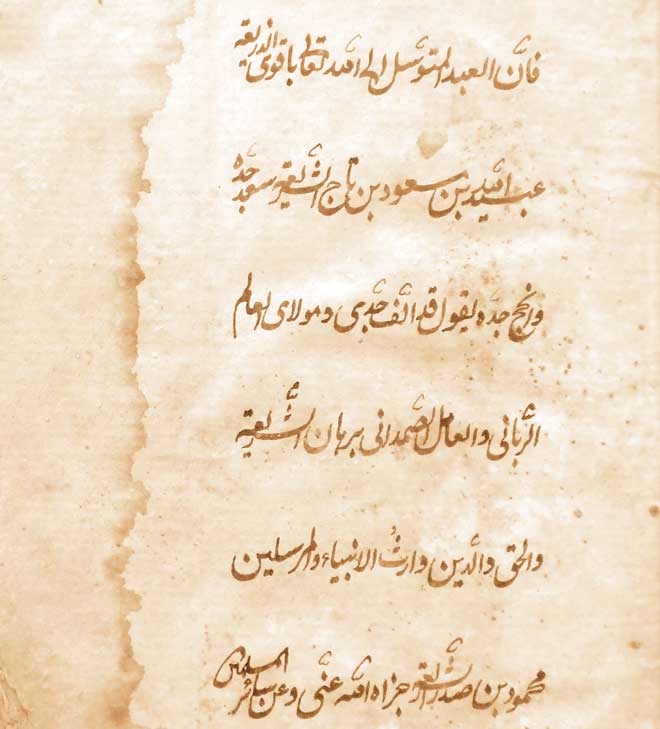 فان العبد المتوسل الى الله تعالى باقوى الذريعة
عبيد الله بن مسعود بن تاج الشريعة سعد جده
وانجح جده يقول قد الف جدى ومولاى العالم
الربانى والعامل الصمدانى برهان الشريعة
والحق والدين وارث الانبياء والمرسلين
محمود بن صدر الشريعة جزاه الله عنى وعن سائر المسلمين